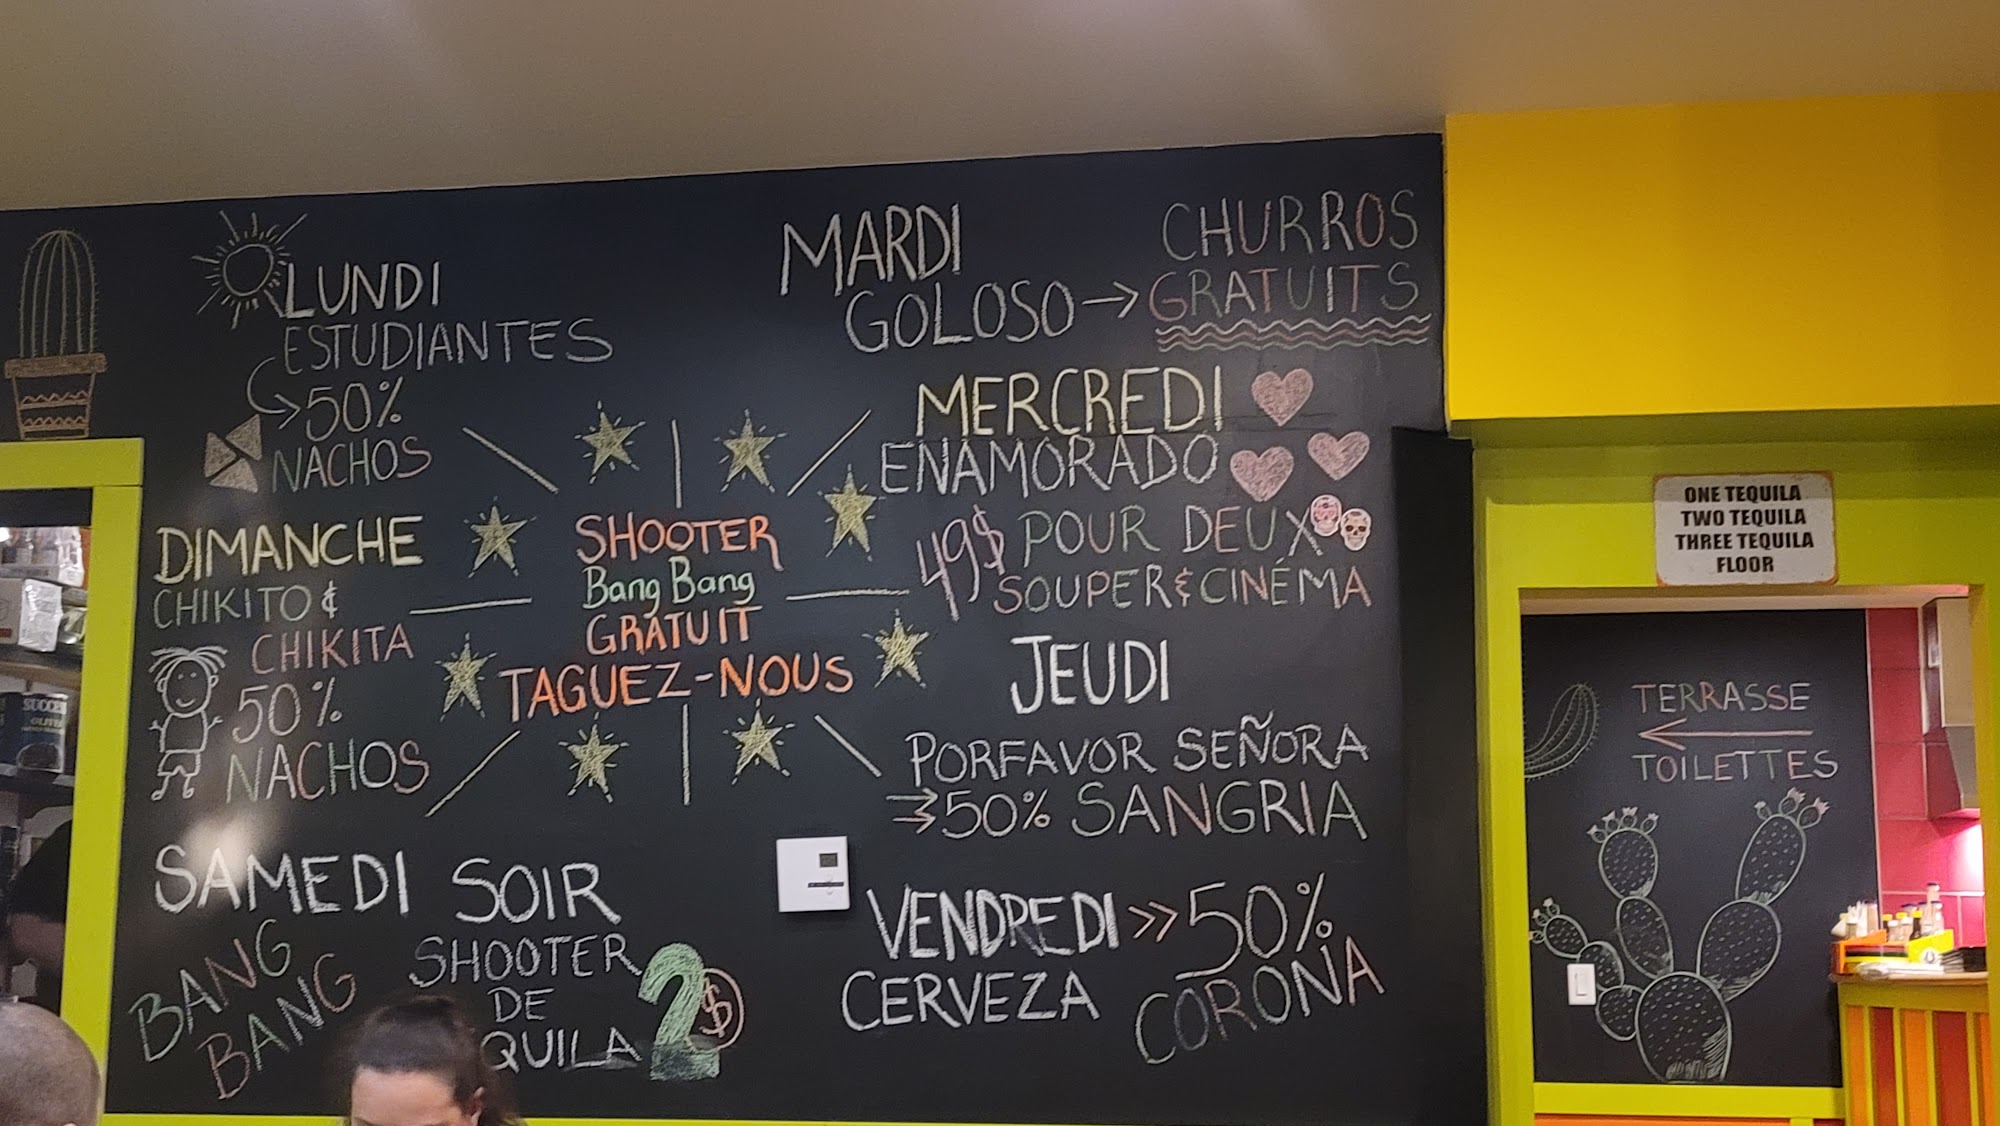 LUNDI
ESTUDIANTES
50%
NACHOS
MARDI
GOLOSO → CHURROS
GRATUITS
MERCREDI
ENAMORADO
49$ POUR DEUX
SOUPER & CINÉMA
DIMANCHE
CHIKITO &
CHIKITA
50%
NACHOS
SHOOTER
Bang Bang
GRATUIT
TAGUEZ-NOUS
JEUDI
PORFAVOR SEÑORA
50% SANGRIA
SAMEDI SOIR
BANG
BANG
SHOOTER
DE
QUILA
2$
VENDREDI >> 50%
CERVEZA CORONA
ONE TEQUILA
TWO TEQUILA
THREE TEQUILA
FLOOR
TERRASSE
TOILETTES